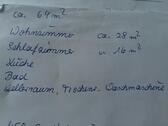 ca. 64 m²
Wohnzimmer ca. 28 m²
Schlafzimmer " 16 m²
Küche
Bad
Kellerraum, Trockenr. Waschmaschine